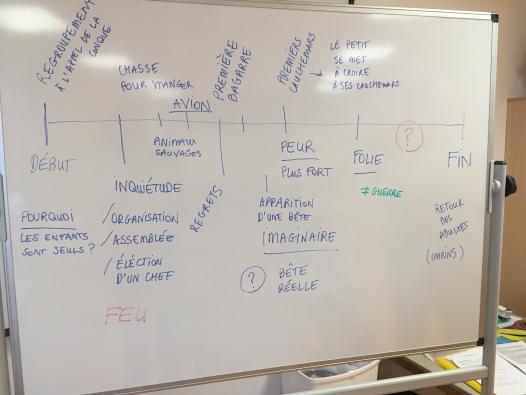 REGROUPEMENT
À L'APPEL DE LA
CONQUE
CHASSE
POUR MANGER
AVION
PREMIÈRE
BAGARRE
PREMIERS
CAUCHEMARS
→ LE PETIT
SE MET
À CROIRE
À SES CAUCHEMARS
ANIMAUX
SAUVAGES
?
DÉBUT
PEUR
PLUS FORT
FOLIE
FIN
≠ GUERRE
INQUIÉTUDE
/ ORGANISATION
/ ASSEMBLÉE
/ ÉLÉCTION
D'UN CHEF
FEU
POURQUOI
LES ENFANTS
SONT SEULS ?
REGRETS
APPARITION
D'UNE BÊTE
IMAGINAIRE
? BÊTE
RÉELLE
RETOUR
DES
ADULTES
(MARINS)